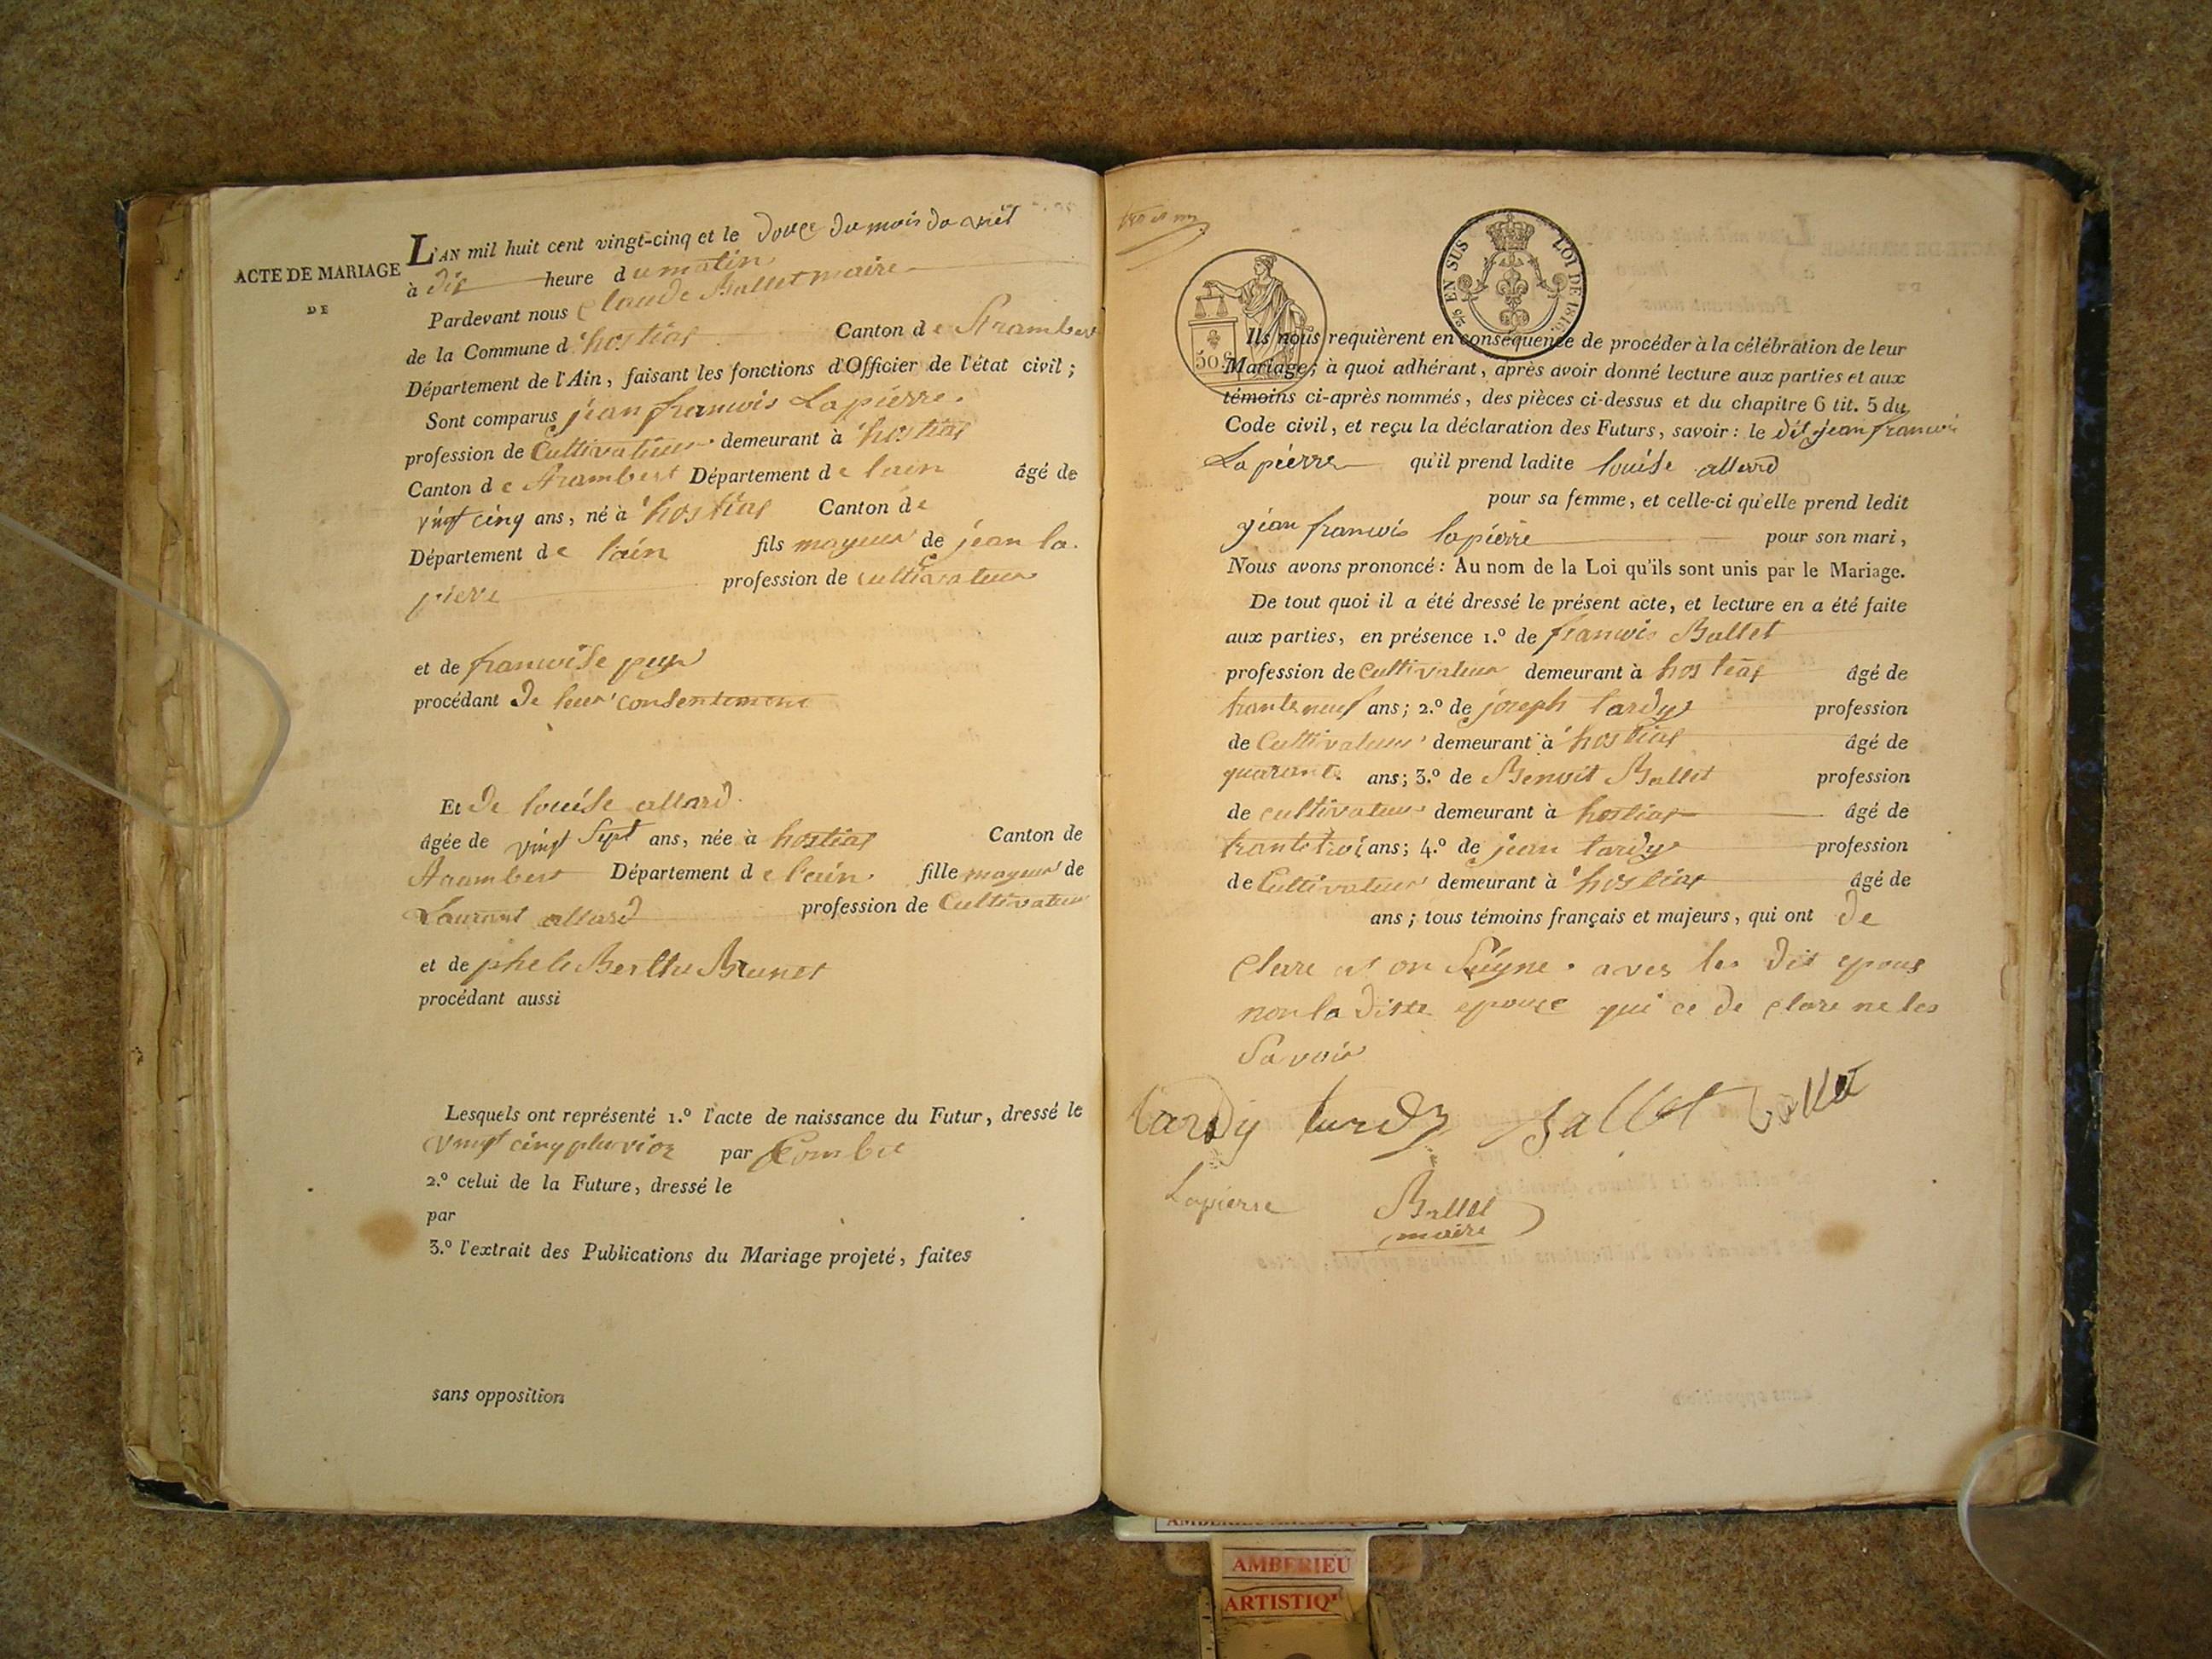 ACTE DE MARIAGE
DE
L'AN mil huit cent vingt-cinq et le douce du mois d'avril
à dix heure du matin
Pardevant nous claude Ballet maire
de la Commune d'hostias Canton de St rambert
Département de l'Ain, faisant les fonctions d'Officier de l'état civil;
Sont comparus jean francois Lapierre
profession de Cultivateur demeurant à hostias
Canton de St rambert Département de lain âgé de
vingt cinq ans, né à hostias Canton de
Département de l'ain fils mayeur de jean la
pierre profession de cultivateur
et de francoise
procédant de leur consentement
Et de louise allard
âgée de vingt Sept ans, née à hostias Canton de
St rambert Département de l'ain fille mayeur de
Laurent allard profession de Cultivateur
et de Brunet
procédant aussi
Lesquels ont représenté 1.º l'acte de naissance du Futur, dressé le
vingt cinq pluvioz par
2.º celui de la Future, dressé le
par
3.º l'extrait des Publications du Mariage projeté, faites
sans opposition
50 c
2/5 EN SUS LOI DE 1816.
Ils nous requièrent en conséquence de procéder à la célébration de leur
Mariage; à quoi adhérant, après avoir donné lecture aux parties et aux
témoins ci-après nommés, des pièces ci-dessus et du chapitre 6 tit. 5 du
Code civil, et reçu la déclaration des Futurs, savoir: le dit jean francois
Lapierre qu'il prend ladite louise allard
pour sa femme, et celle-ci qu'elle prend ledit
jean francois lapierre pour son mari,
Nous avons prononcé: Au nom de la Loi qu'ils sont unis par le Mariage.
De tout quoi il a été dressé le présent acte, et lecture en a été faite
aux parties, en présence 1.º de francois Ballet
profession de Cultivateur demeurant à hostias âgé de
trante neuf ans; 2.º de joseph tardy profession
de Cultivateur demeurant à hostias âgé de
quarante ans; 3.º de Benoit Ballet profession
de cultivateur demeurant à hostias âgé de
trante troi ans; 4.º de jean tardy profession
de Cultivateur demeurant à hostias âgé de
ans; tous témoins français et majeurs, qui ont de
clare et on Signe avec les dit epous
non la ditte epouse qui ce de clare ne les
Savoir
tardy tardy Ballet Ballet
Lapierre Ballet
maire
AMBERIEU
ARTISTIQ